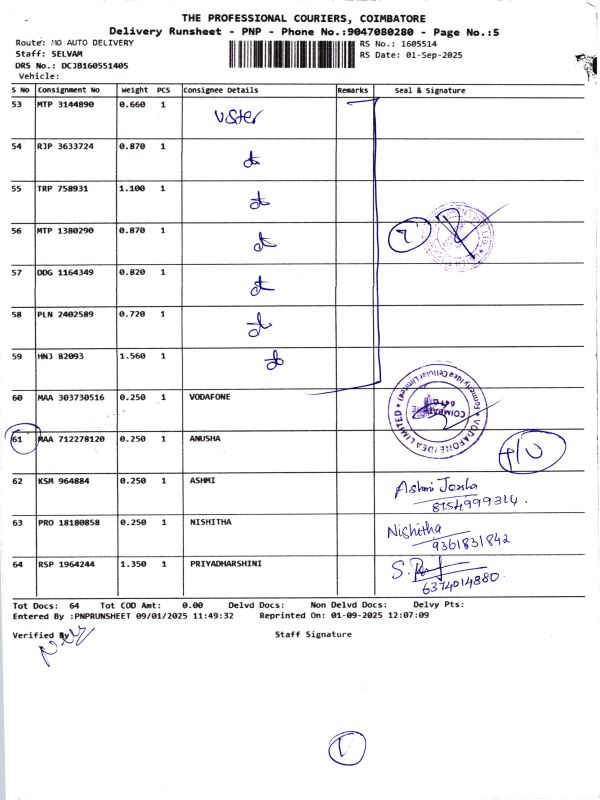 THE PROFESSIONAL COURIERS, COIMBATORE
Delivery Runsheet - PNP - Phone No.:9047080280 - Page No.:5
Route: MO AUTO DELIVERY RS No.: 1605514
Staff: SELVAM RS Date: 01-Sep-2025
DRS No.: DCJB160551405
Vehicle:
S No Consignment No Weight PCS Consignee Details Remarks Seal & Signature
53 MTP 3144890 0.660 1 Uster
54 RJP 3633724 0.870 1
55 TRP 758931 1.100 1
56 MTP 1380290 0.870 1
57 DDG 1164349 0.820 1
58 PLN 2402589 0.720 1
59 HNJ 82093 1.560 1
60 MAA 303730516 0.250 1 VODAFONE
VODAFONE IDEA LIMITED
(Formerly Idea Cellular Limited)
61 MAA 712278120 0.250 1 ANUSHA
62 KSM 964884 0.250 1 ASHMI
8754999314.
63 PRO 18180858 0.250 1 NISHITHA Nishitha
9361831842
64 RSP 1964244 1.350 1 PRIYADHARSHINI
6374014880.
Tot Docs: 64 Tot COD Amt: 0.00 Delvd Docs: Non Delvd Docs: Delvy Pts:
Entered By :PNPRUNSHEET 09/01/2025 11:49:32 Reprinted On: 01-09-2025 12:07:09
Verified By Staff Signature